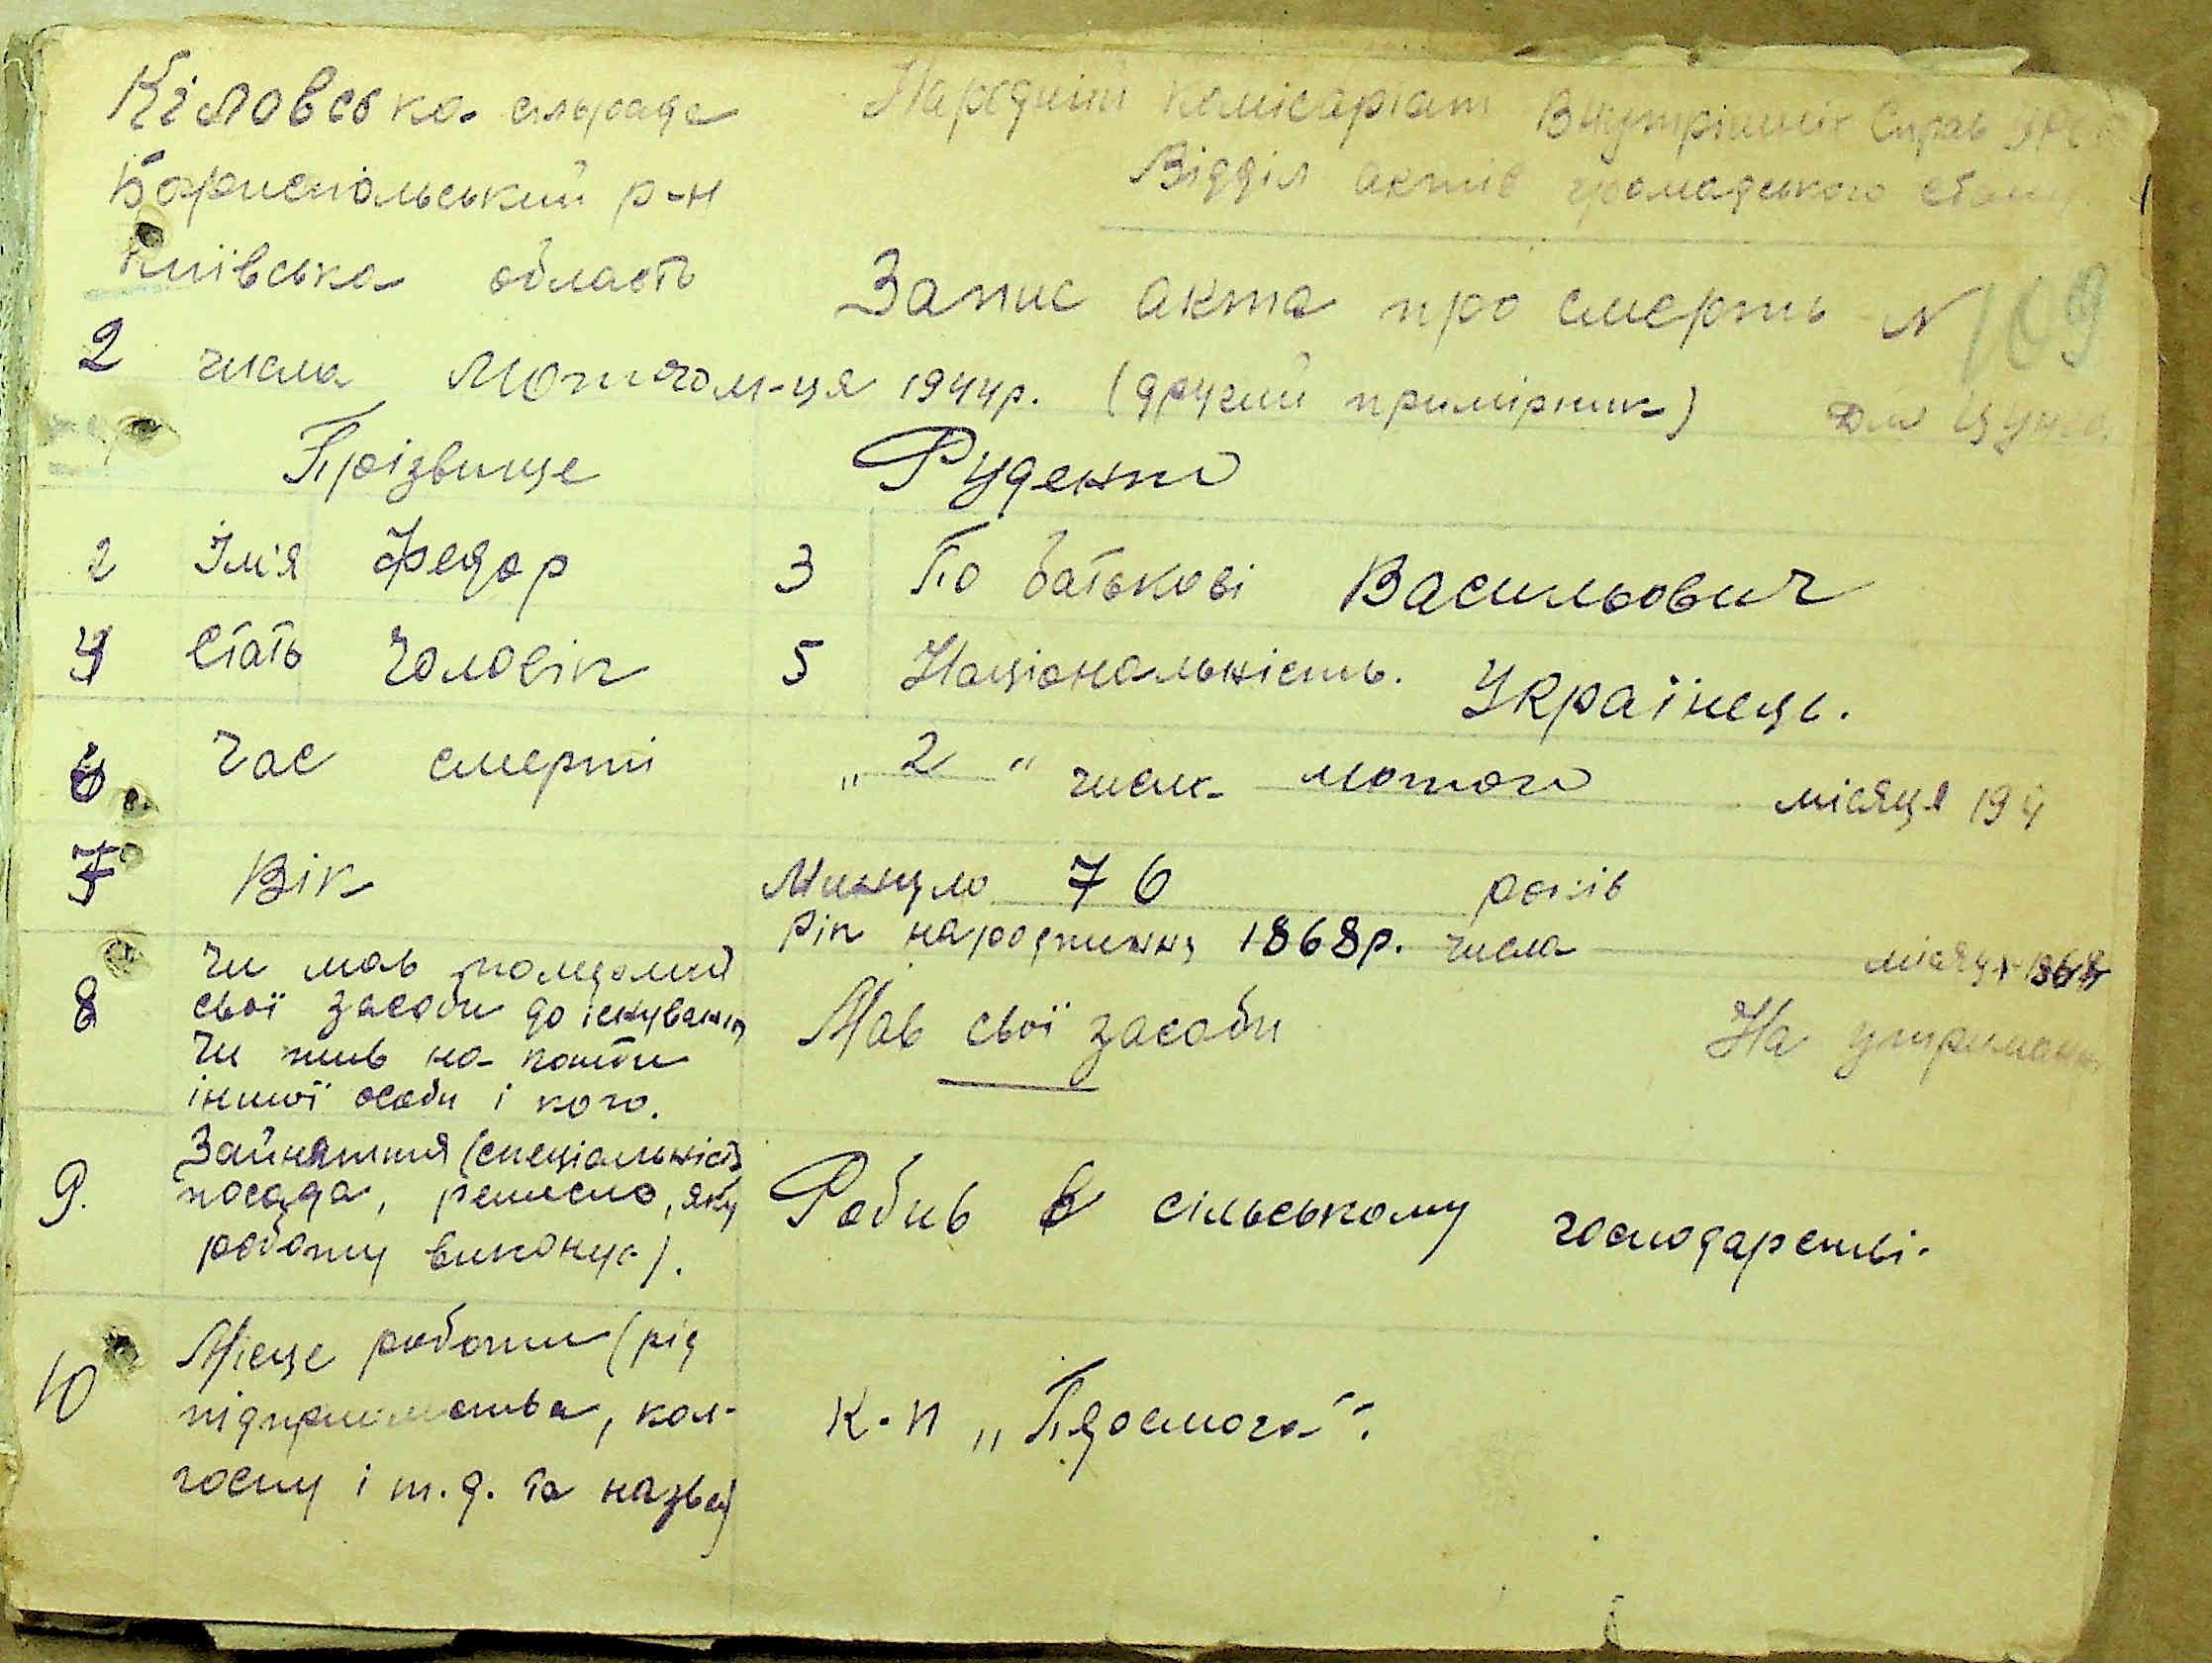 Кіловська сільрада
Народній комісаріат Внутрішніх Справ
Бориспольський р-н
Відділ актів громадського стану
Київська область
Запис акта про смерть N 109
2 числа Лютого м-ця 1944р. (другий примірник) Для
Прізвище Руденко
2 Ім'я Федор 3 По батькові Васильович
4 Стать Чоловік 5 Національність. Українець.
6 Час смерті „ 2 " числа лютого місяця 194
7 Вік Минуло 76 років
Рік народження 1868р. числа місяця 1868
8 Чи мав померлий
свої засоби до існування
Чи жив на кошти
іншої особи і кого.
Мав свої засоби На утриманні
9. Зайняття (спеціальність
посада, ремесло, яку
роботу виконує).
Робив в сільському господарстві.
10 Місце роботи (рід
підприємства, кол-
госпу і т.д. та назва)
к-п „Підсмога".